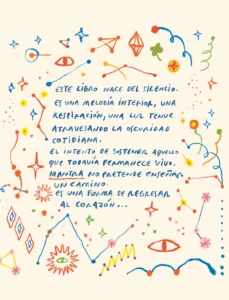 ESTE LIBRO NACE DEL SILENCIO.
ES UNA MELODÍA INTERIOR, UNA
RESPIRACIÓN, UNA LUZ TENUE
ATRAVESANDO LA OSCURIDAD
COTIDIANA.
EL INTENTO DE SOSTENER AQUELLO
QUE TODAVÍA PERMANECE VIVO.
MANTRA NO PRETENDE ENSEÑAR
UN CAMINO.
ES UNA FORMA DE REGRESAR
AL CORAZÓN...